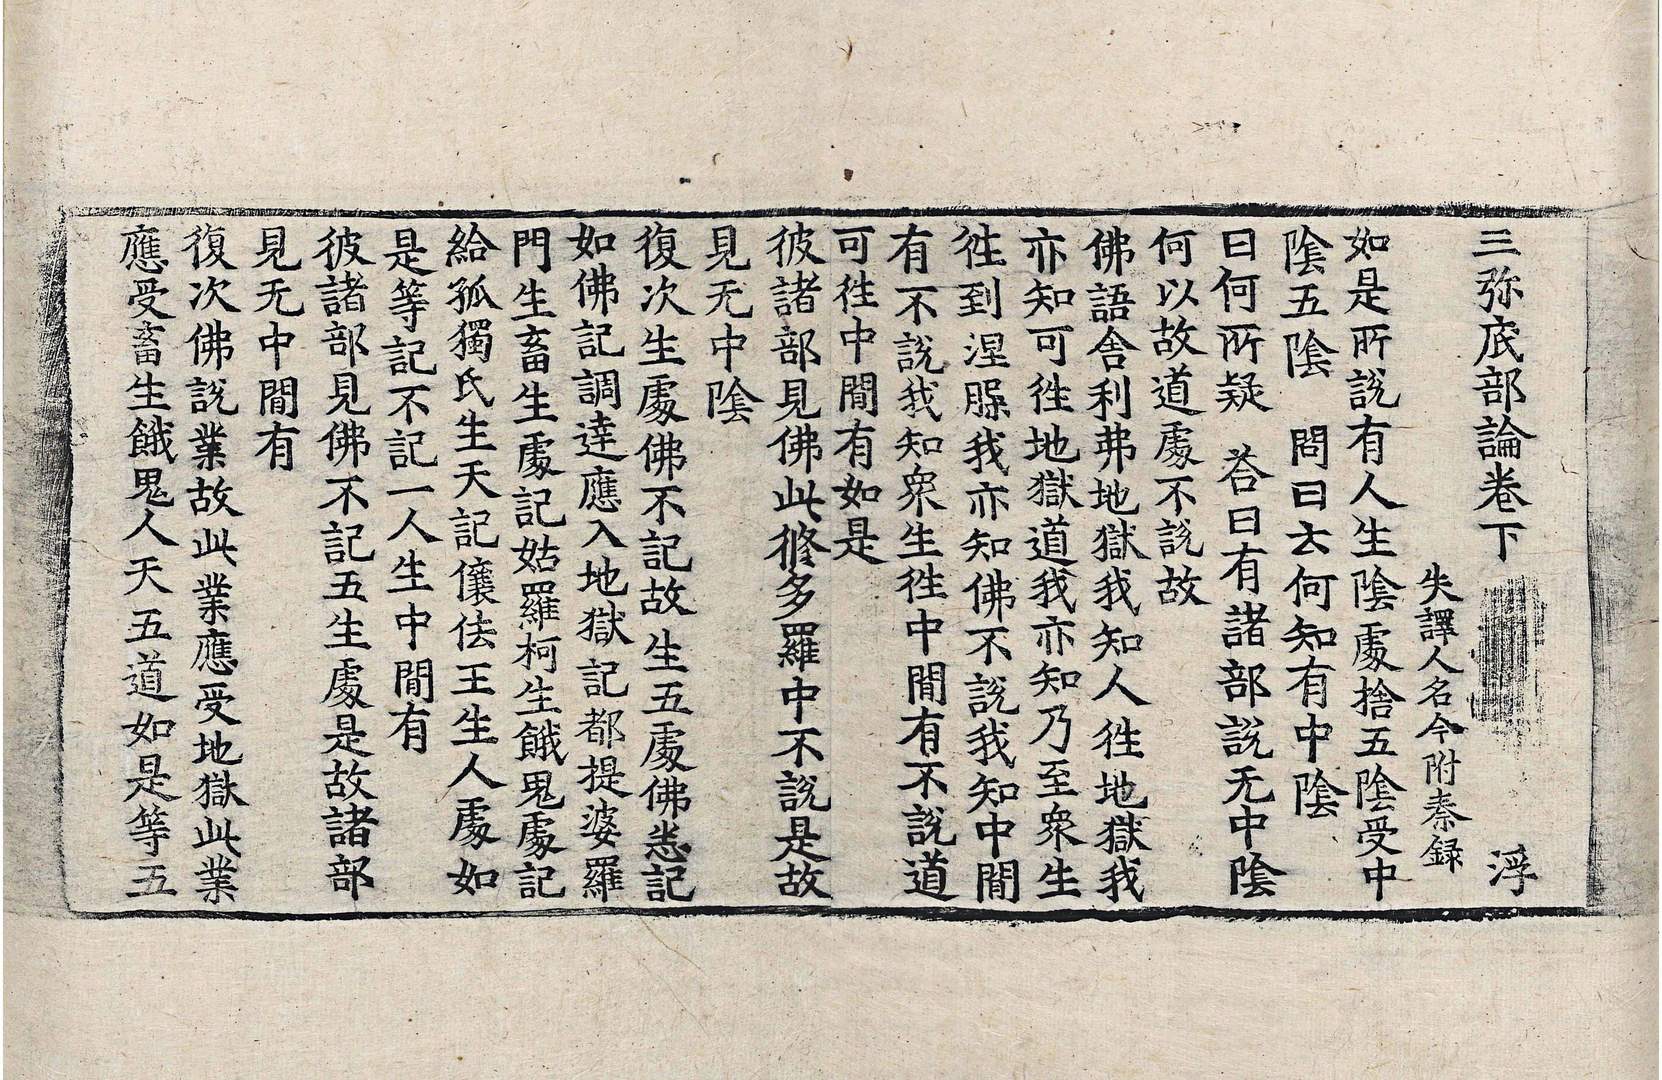 三弥底部論卷下 浮
失譯人名今附秦録
如是所說有人生陰處捨五陰受中
陰五陰 問曰云何知有中陰
曰何所疑 荅曰有諸部說无中陰
何以故道處不說故
佛語舍利弗地獄我知人徃地獄我
亦知可徃地獄道我亦知乃至衆生
徃到涅槃我亦知佛不說我知中間
有不說我知衆生徃中間有不說道
可徃中間有如是
彼諸部見佛此修多羅中不說是故
見无中陰
復次生處佛不記故生五處佛悉記
如佛記調達應入地獄記都提婆羅
門生畜生處記姑羅柯生餓鬼處記
給孤獨氏生天記儴佉王生人處如
是等記不記一人生中間有
彼諸部見佛不記五生處是故諸部
見无中間有
復次佛說業故此業應受地獄此業
應受畜生餓鬼人天五道如是等五